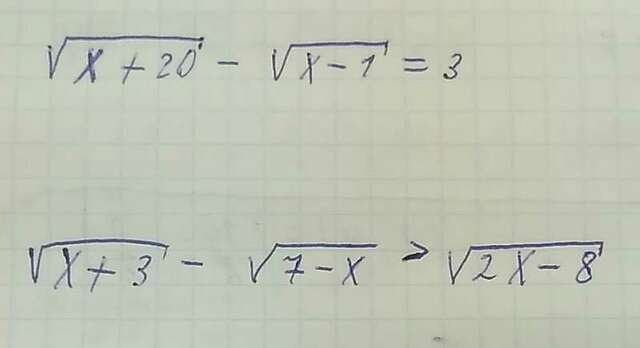 √(x+20) - √(x-1) = 3
√(x+3) - √(7-x) > √(2x-8)